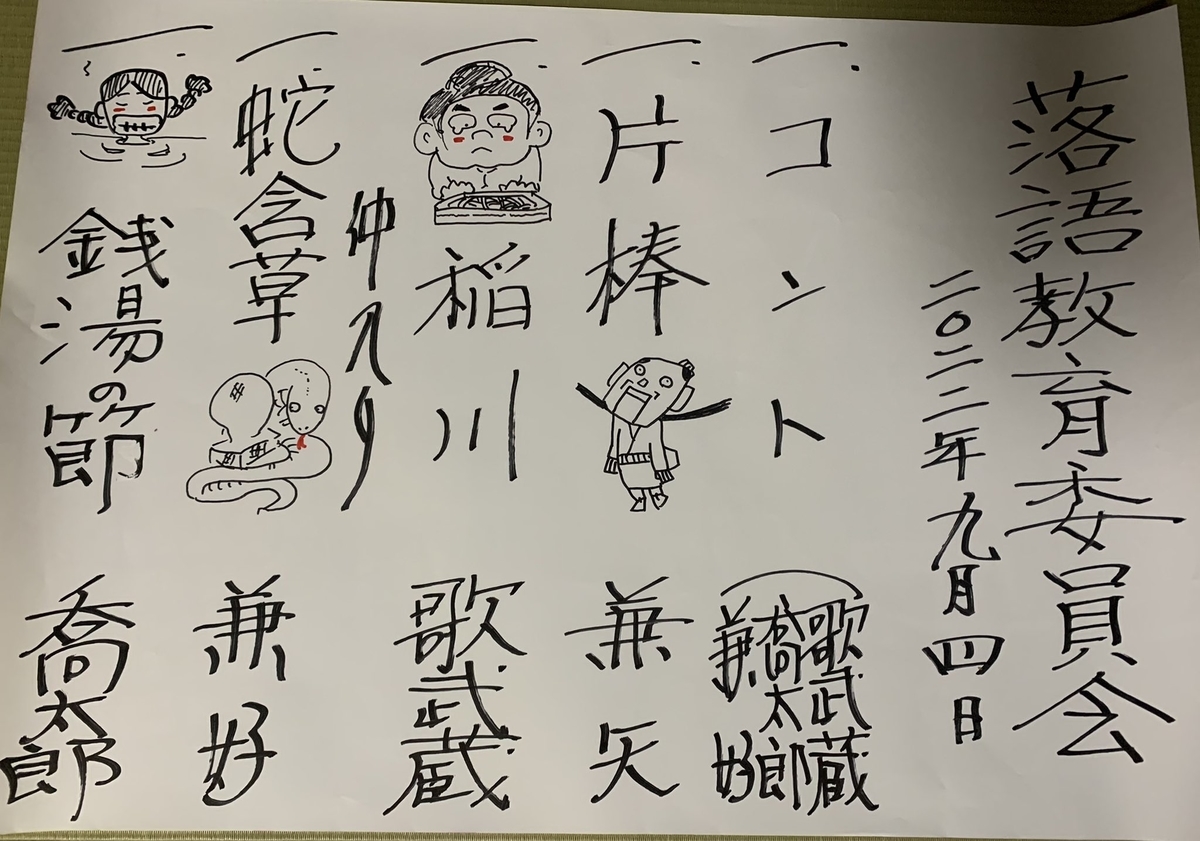 落語教育委員会
二〇二二年九月四日
一、コント 歌武蔵 喬太郎 兼好
一、片棒 兼矢
一、稲川 歌武蔵
仲入り
一、蛇含草 兼好
一、銭湯の節 喬太郎